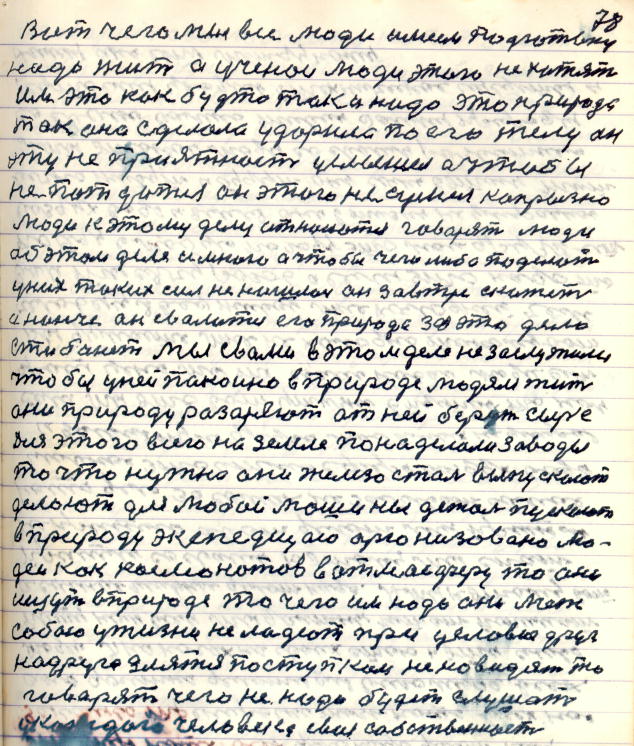 78
Вот чего мы все люди имеем подготовку
надо жит а ученои люди этого не хотят
им это как будто так и надо это природа
так она сделала ударила по его телу он
эту не приятност услышел а чтобы
не он этого не сумел капризно
люди к этому делу относятся говарят люди
об этом деле и много а чтобы чего либо поделат
уних таких сил не нашлос он завтре скажет
а нонче он свалится его природа за это дело
стибанет мы свами вэтом деле не заслужили
чтобы уней пакоино вприроде людям жит
они природу разаряют от ней берут сырье
для этого всего на земле понаделали заводы
то что нужно они железо стал выпускают
делают для любой машины детал пускают
вприроду экспедицыю организовано лю-
деи как космонотов ватмасферу то они
ищут вприроде то чего им надо они меж
собою ужизни не ладют при условие друг
надруга злятся поступком не новидят то
говарят чего не надо будет слушат
укождого человека своя собственност